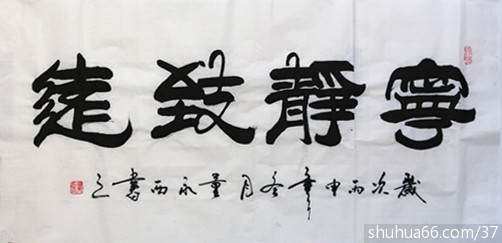 寧靜致遠
歲次丙申年冬月董永西書之
shuhua66.com/37